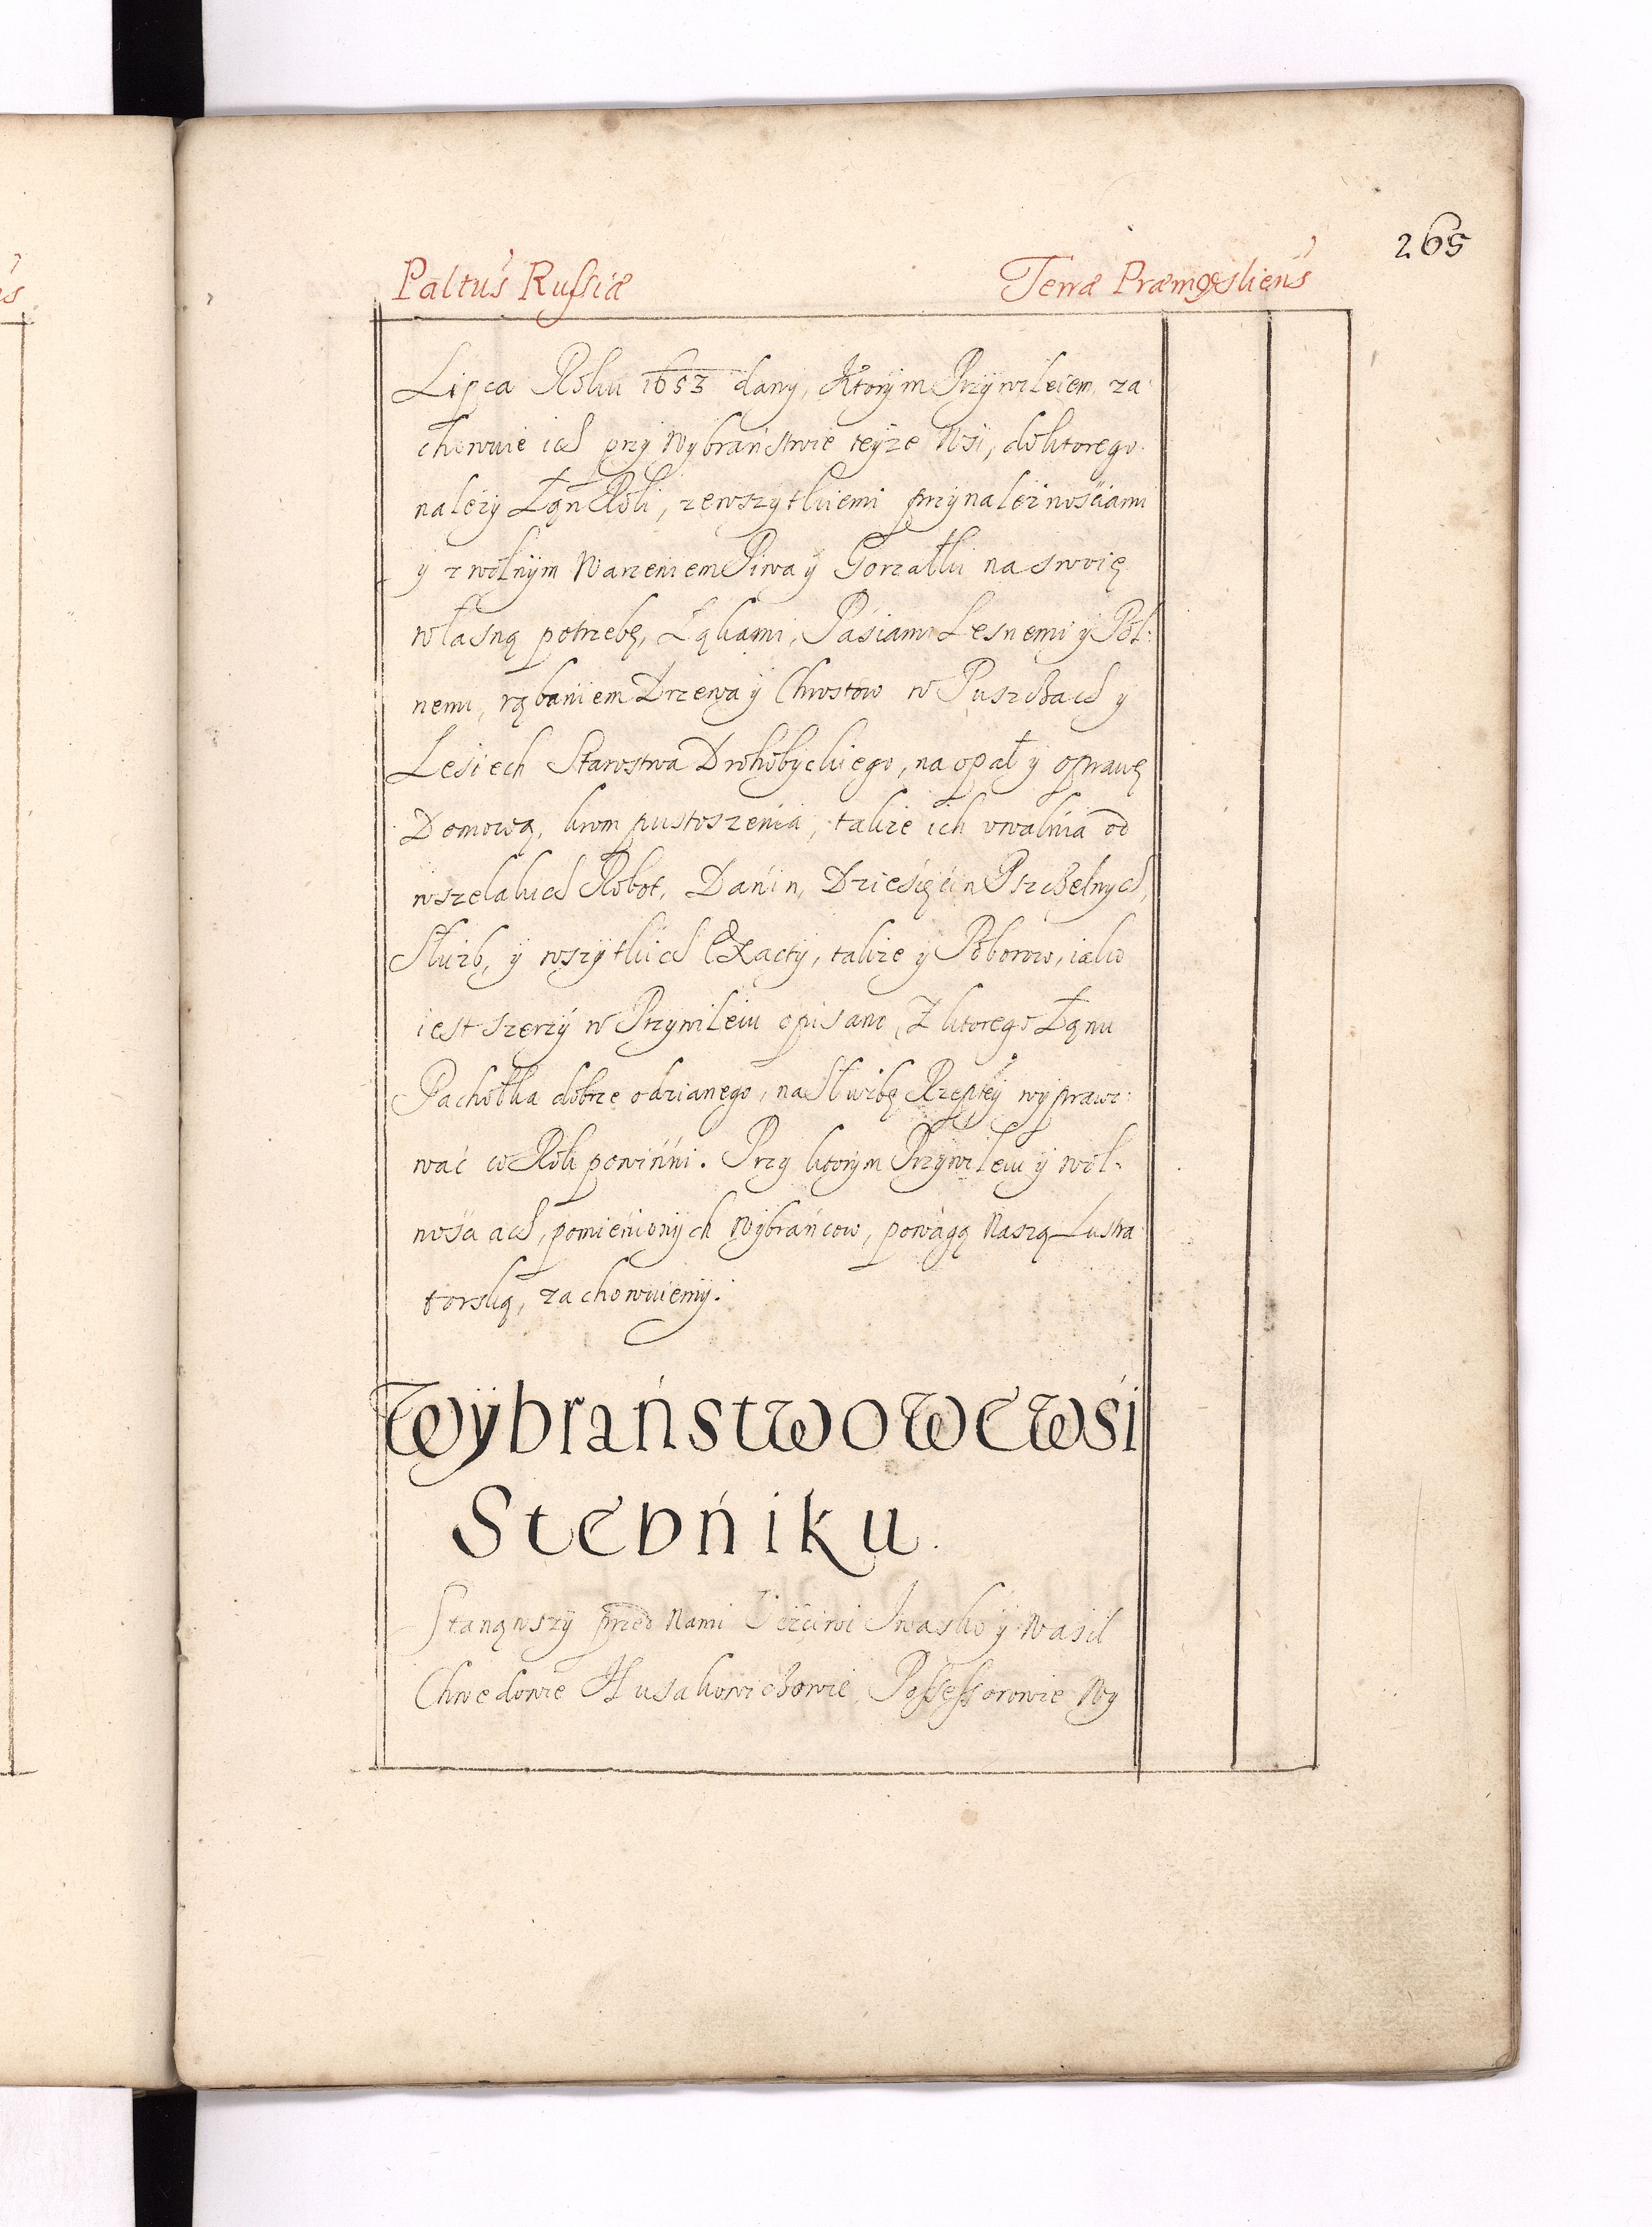 265
Paltus Russiæ Terræ Præmysliens
Lipca Roku 1653 dany, Ktorym Przywileiem, za
chowuie ich przy Wybraństwie teyże Wsi, do ktorego
należy Łąn Roli, ze wszytkiemi przynależnościami
y z wolnym Warzeniem Piwa y Gorzałki na swoię
własną potrzebę, Łąkami, Pasiami Lesnemi y Pol:
nemi, rąbaniem Drzewa y Chrostow w Puszczach y
Lesiech Starostwa Drohobyckiego, na opał y oprawę
Domową, krom pustoszenia, także ich uwalnia od
wszelakich Robot, Danin, Dziesięcin Pszczelnych,
Służb, y wszytkich Exacty, także y Poborow, iako
iest szerzy w Przywileiu opisano, Z ktorego Łąnu
Pachołka dobrze odzianego, na Służbę Rzeptey wyprawo:
wać co Rok powinni. Przy ktorym Przywileiu y wol:
nościach, pomienionych Wybrańcow, powagą Naszą Lustra
torską, zachowuiemy.
Wybraństwo we wsi
Stebniku.
Stanąwszy przed Nami Uczciwi Iwasko y Wasil
Chwedowie Husakowiczowie, Possessorowie Wy